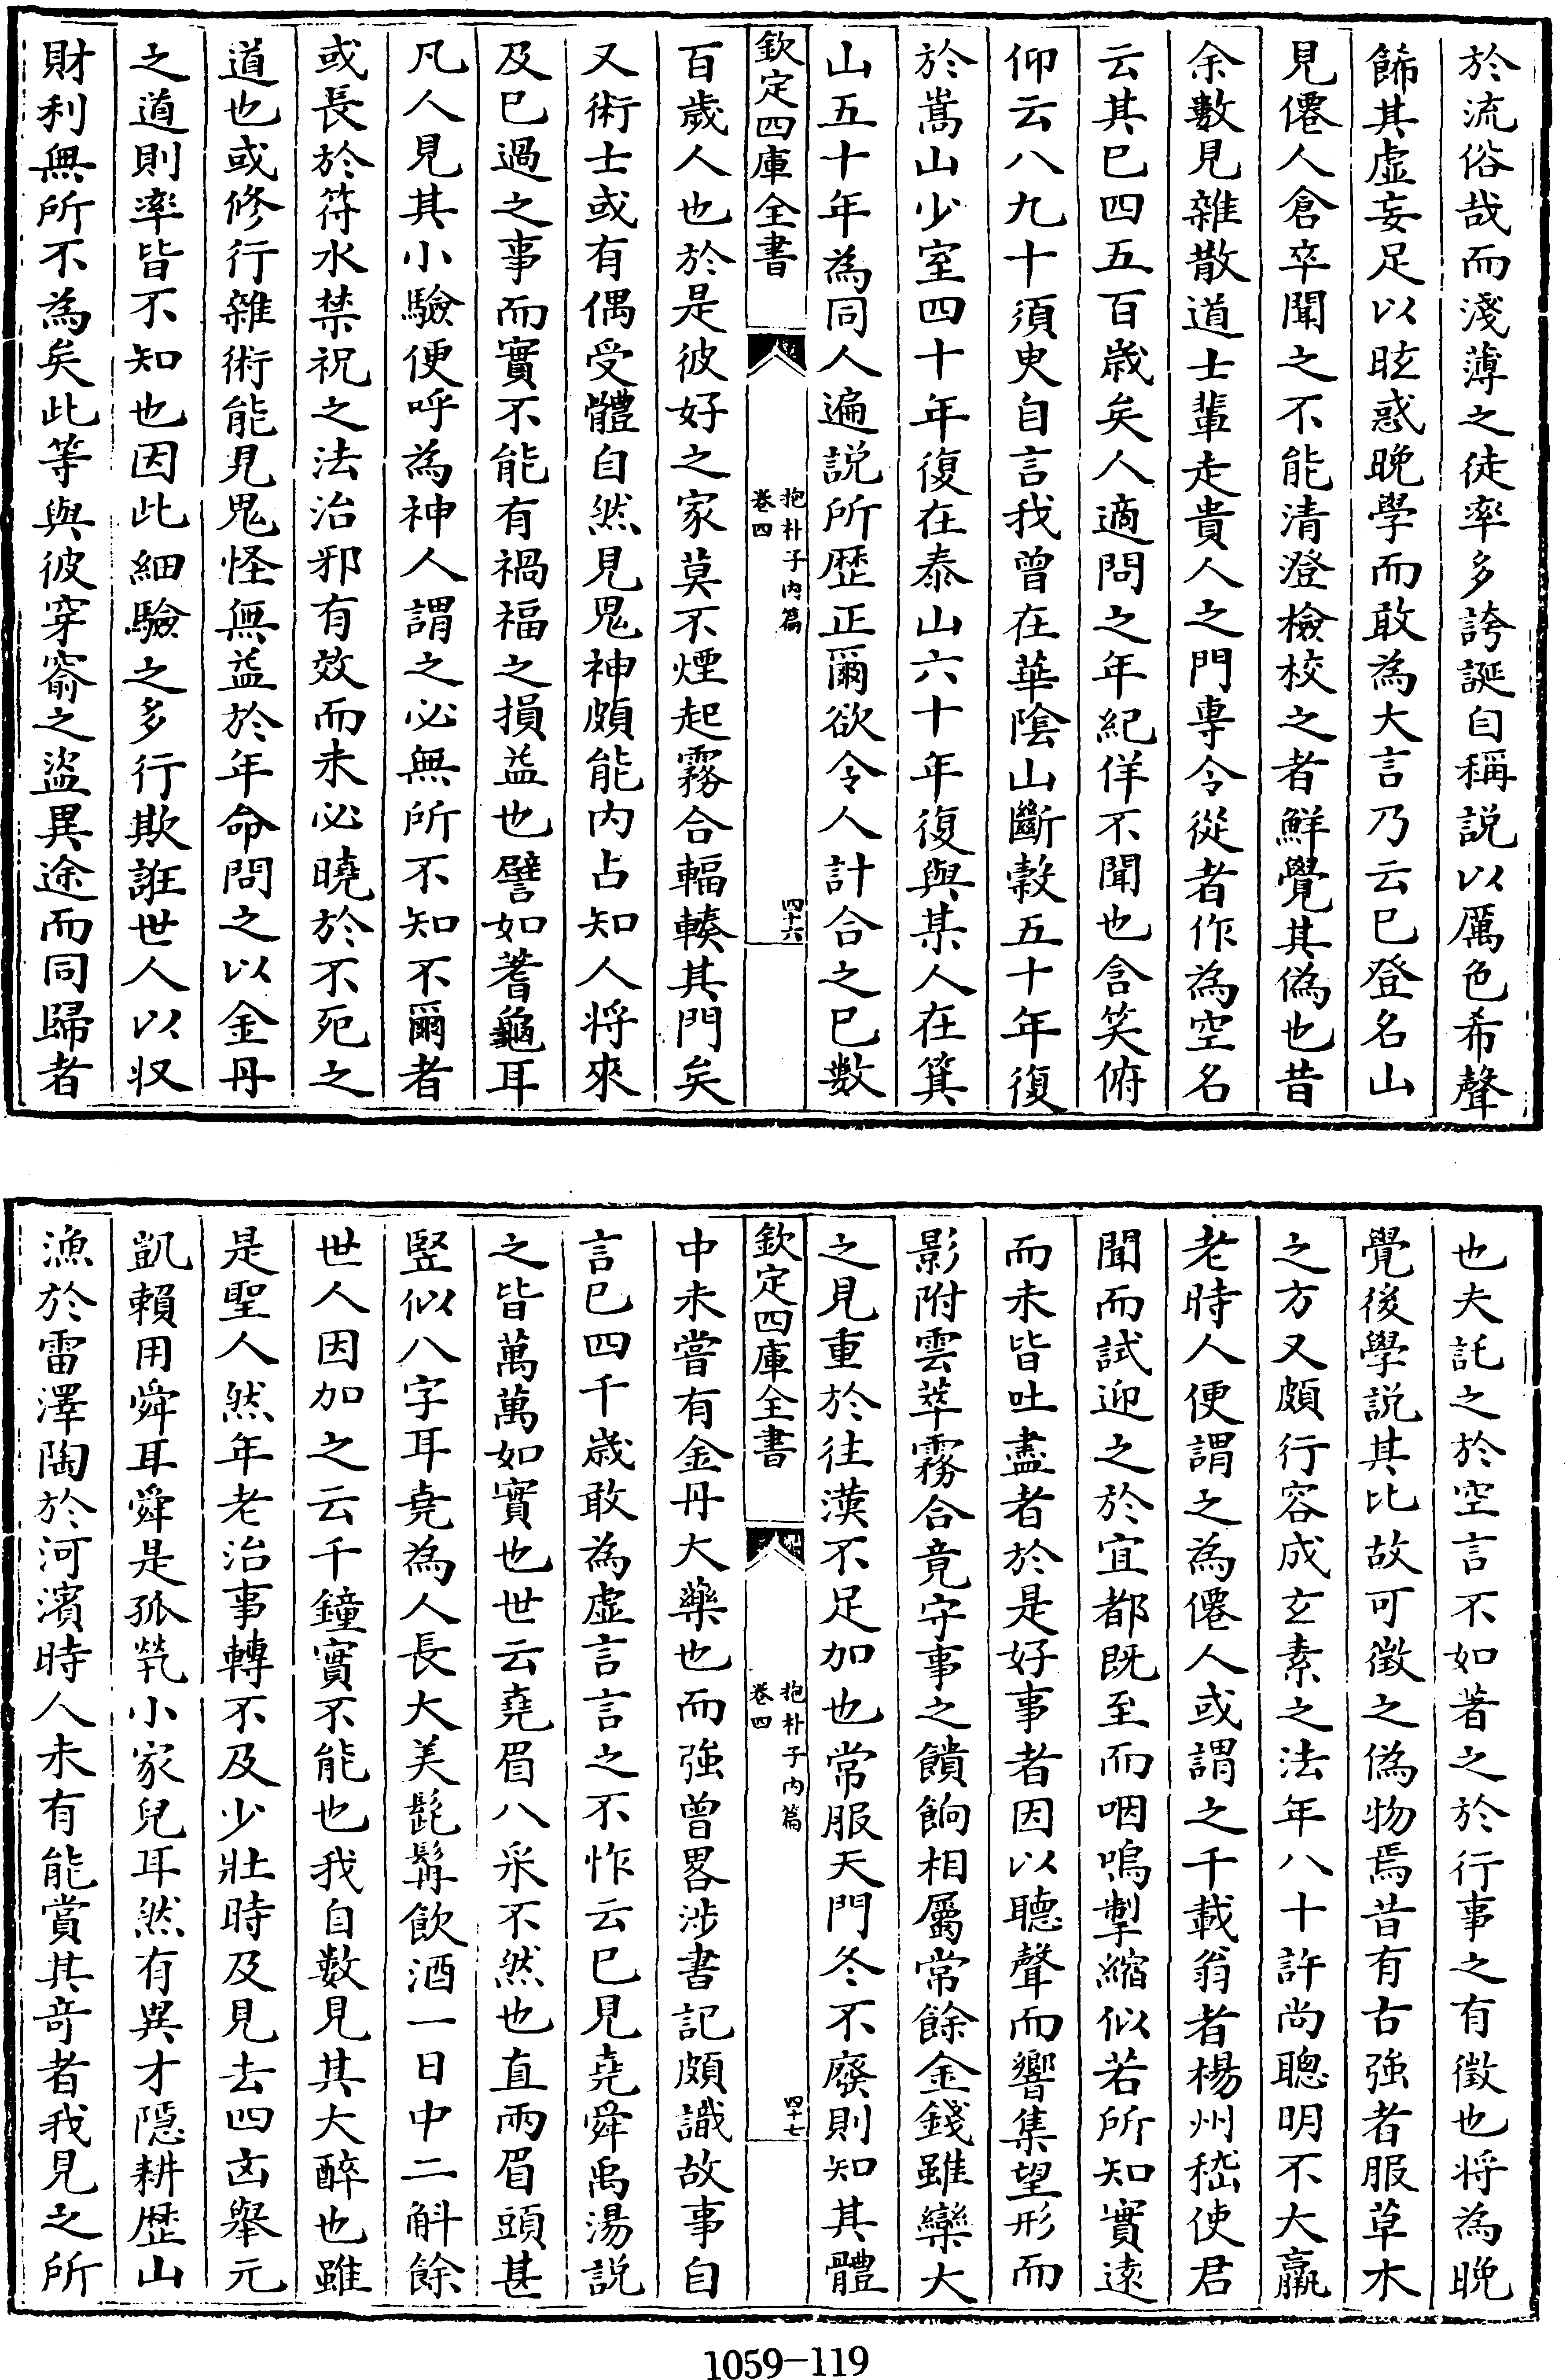 於流俗哉而淺薄之徒率多誇誕自稱説以厲色希聲
餙其虚妄足以眩惑晚學而敢為大言乃云已登名山
見僊人倉卒聞之不能清澄檢校之者鮮覺其偽也昔
余數見雜散道士輩走貴人之門專令從者作為空名
云其已四五百歳矣人適問之年紀佯不聞也含笑俯
仰云八九十須臾自言我曽在華隂山斷穀五十年復
於嵩山少室四十年復在泰山六十年復與某人在箕
山五十年為同人遍説所歴正爾欲令人計合之已數
欽定四庫全書
抱朴子内篇
卷四
四十六
百歳人也於是彼好之家莫不煙起霧合輻輳其門矣
又術士或有偶受體自然見鬼神頗能内占知人将來
及已過之事而實不能有禍福之損益也譬如蓍龜耳
凡人見其小驗便呼為神人謂之必無所不知不爾者
或長於符水禁祝之法治邪有效而未必曉於不死之
道也或修行雜術能見鬼怪無益於年命問之以金丹
之道則率皆不知也因此細驗之多行欺誑世人以収
財利無所不為矣此等與彼穿窬之盜異途而同歸者
也夫託之於空言不如著之於行事之有徵也将為晚
覺後學説其比故可徵之偽物焉昔有古強者服草木
之方又頗行容成玄素之法年八十許尚聰明不大羸
老時人便謂之為僊人或謂之千載翁者楊州嵇使君
聞而試迎之於宜都既至而咽嗚掣縮似若所知實遠
而未皆吐盡者於是好事者因以聽聲而響集望形而
影附雲萃霧合竟守事之饋餉相屬常餘金錢雖欒大
之見重於往漢不足加也常服天門冬不廢則知其體
欽定四庫全書
抱朴子内篇
卷四
四十七
中未嘗有金丹大藥也而強曽畧渉書記頗識故事自
言已四千歳敢為虚言言之不怍云已見堯舜禹湯説
之皆萬萬如實也世云堯眉八采不然也直兩眉頭甚
竪似八字耳堯為人長大美髭髯飲酒一日中二斛餘
世人因加之云千鐘實不能也我自數見其大醉也雖
是聖人然年老治事轉不及少壯時及見去四凶舉元
凱賴用舜耳舜是孤煢小家兒耳然有異才隠耕歴山
漁於雷澤陶於河濱時人未有能賞其奇者我見之所
1059-119